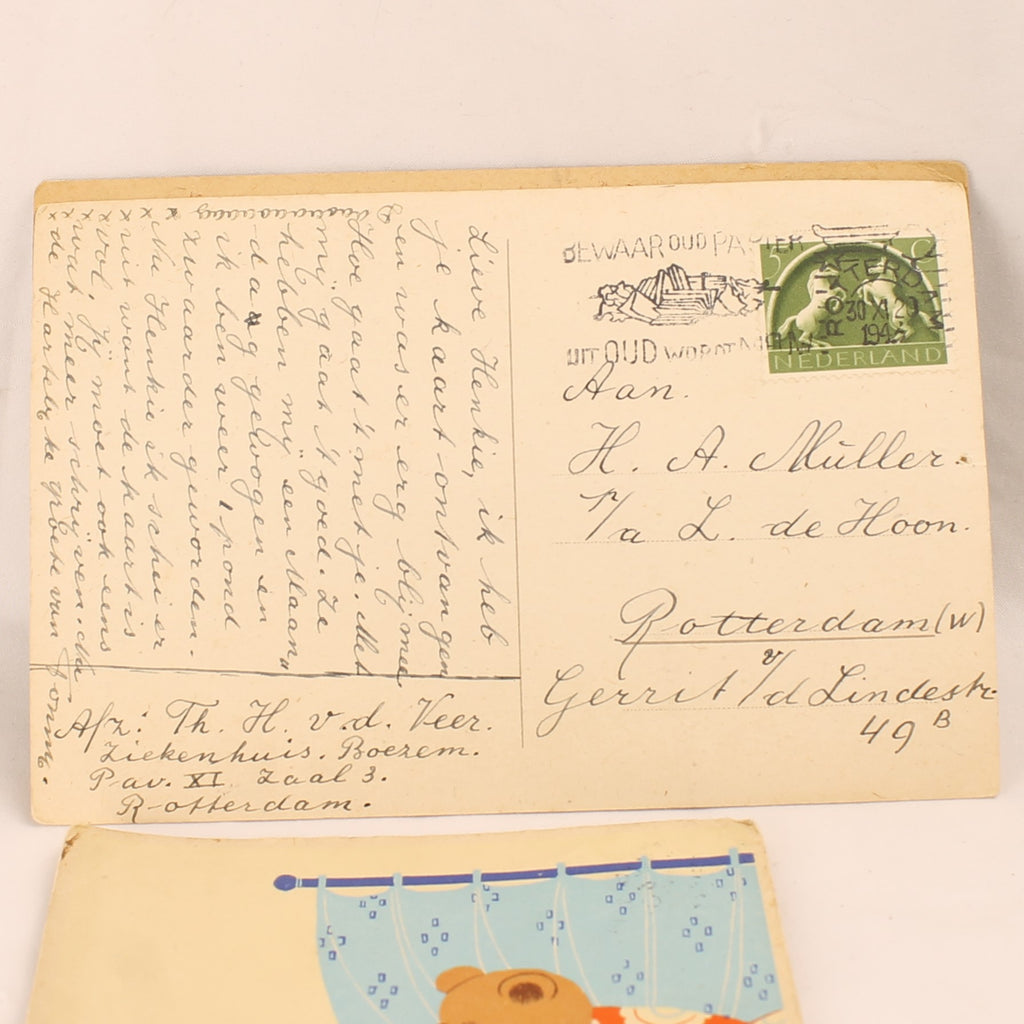 Lieve Henkie, ik heb
je kaart ontvangen
en was er erg blij mee
Hoe gaat 't met je. Met
mij gaat 't goed. Ze
hebben mij een Maan
dag gewogen en
ik ben weer 1 pond
zwaarder geworden.
Nu Henkie ik schei er
uit want de kaart is
vol. Jij moet ook eens
wat meer schrijven. Nu
de Hartelijke groeten van
BEWAAR OUD PAPIER
UIT OUD WORDT
ROTTERDAM
30 XI 20
194
5 C
NEDERLAND
Aan.
H. A. Müller.
p/a L. de Hoon.
Rotterdam (W)
Gerrit v/d Lindestr.
49 B
Afz: Th. H. v. d. Veer.
Ziekenhuis. Boezem.
Pav. XI Zaal 3.
Rotterdam.